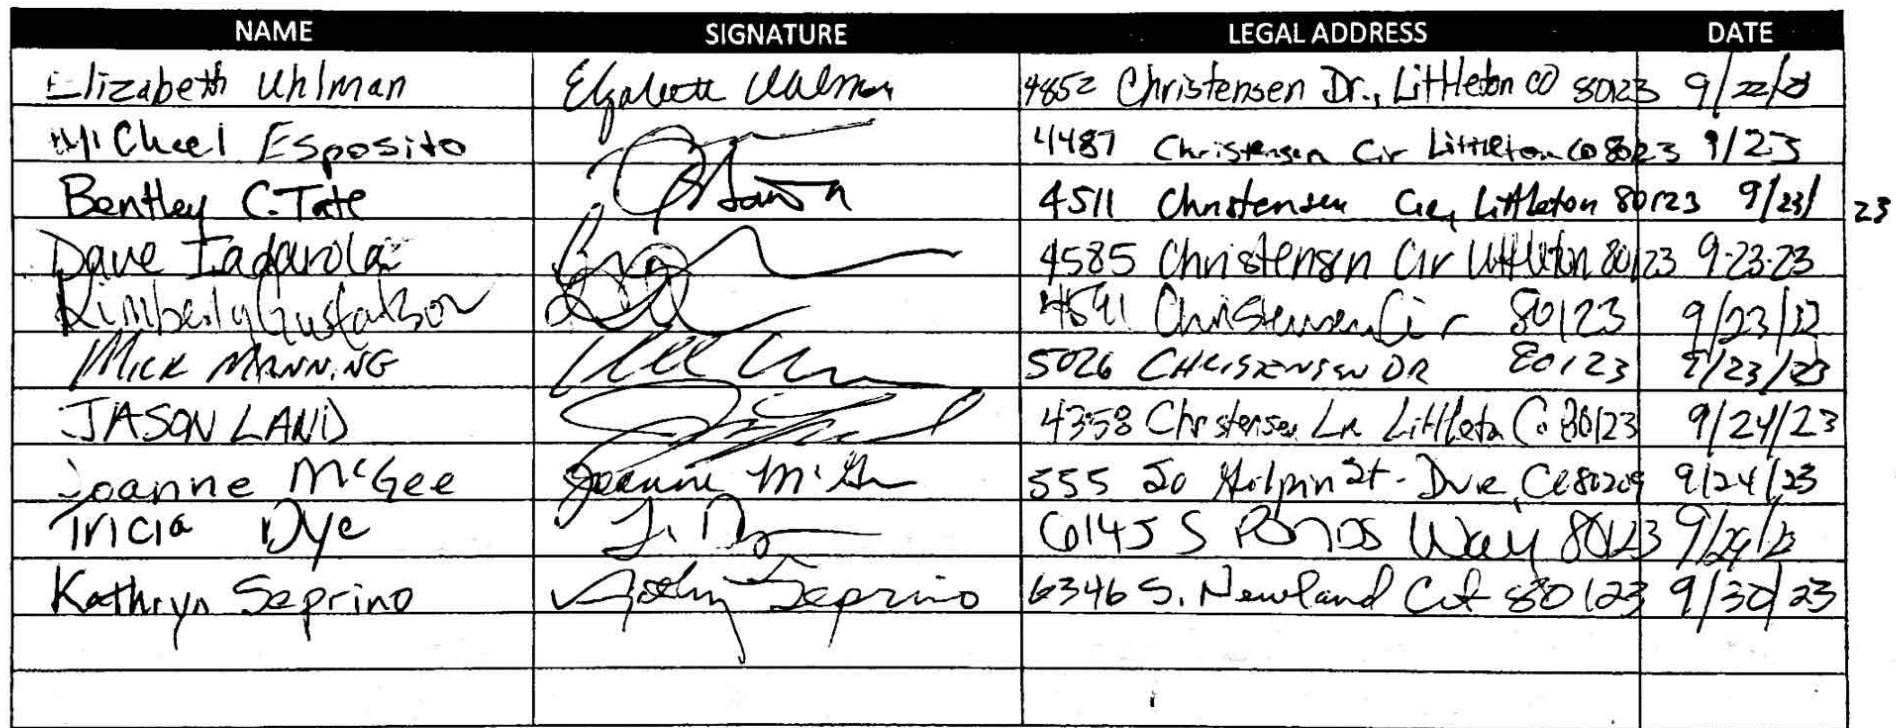 NAME SIGNATURE LEGAL ADDRESS DATE
Elizabeth Uhlman Elizabeth Uhlman 4852 Christensen Dr., Littleton CO 80123 9/22/23
Michael Esposito 4487 Christensen Cir Littleton CO 80123 9/23
Bentley C. Tate 4511 Christensen Cir, Littleton 80123 9/23/23
Dave Iadarola 4585 Christensen Cir Littleton 80123 9-23-23
Kimberly Gustafson 4591 Christensen Cir 80123 9/23/23
MICK MANNING 5026 CHRISTENSEN DR 80123 9/23/23
JASON LAND 4358 Christensen Ln Littleton Co 80123 9/24/23
Joanne McGee Joanne McGee 555 So Gilpin St - Dvr, CO 80209 9/24/23
Tricia Dye T. Dye 6145 S Way 80123
Kathryn Seprino Kathy Seprino 6346 S. Newland Ct 80123 9/30/23